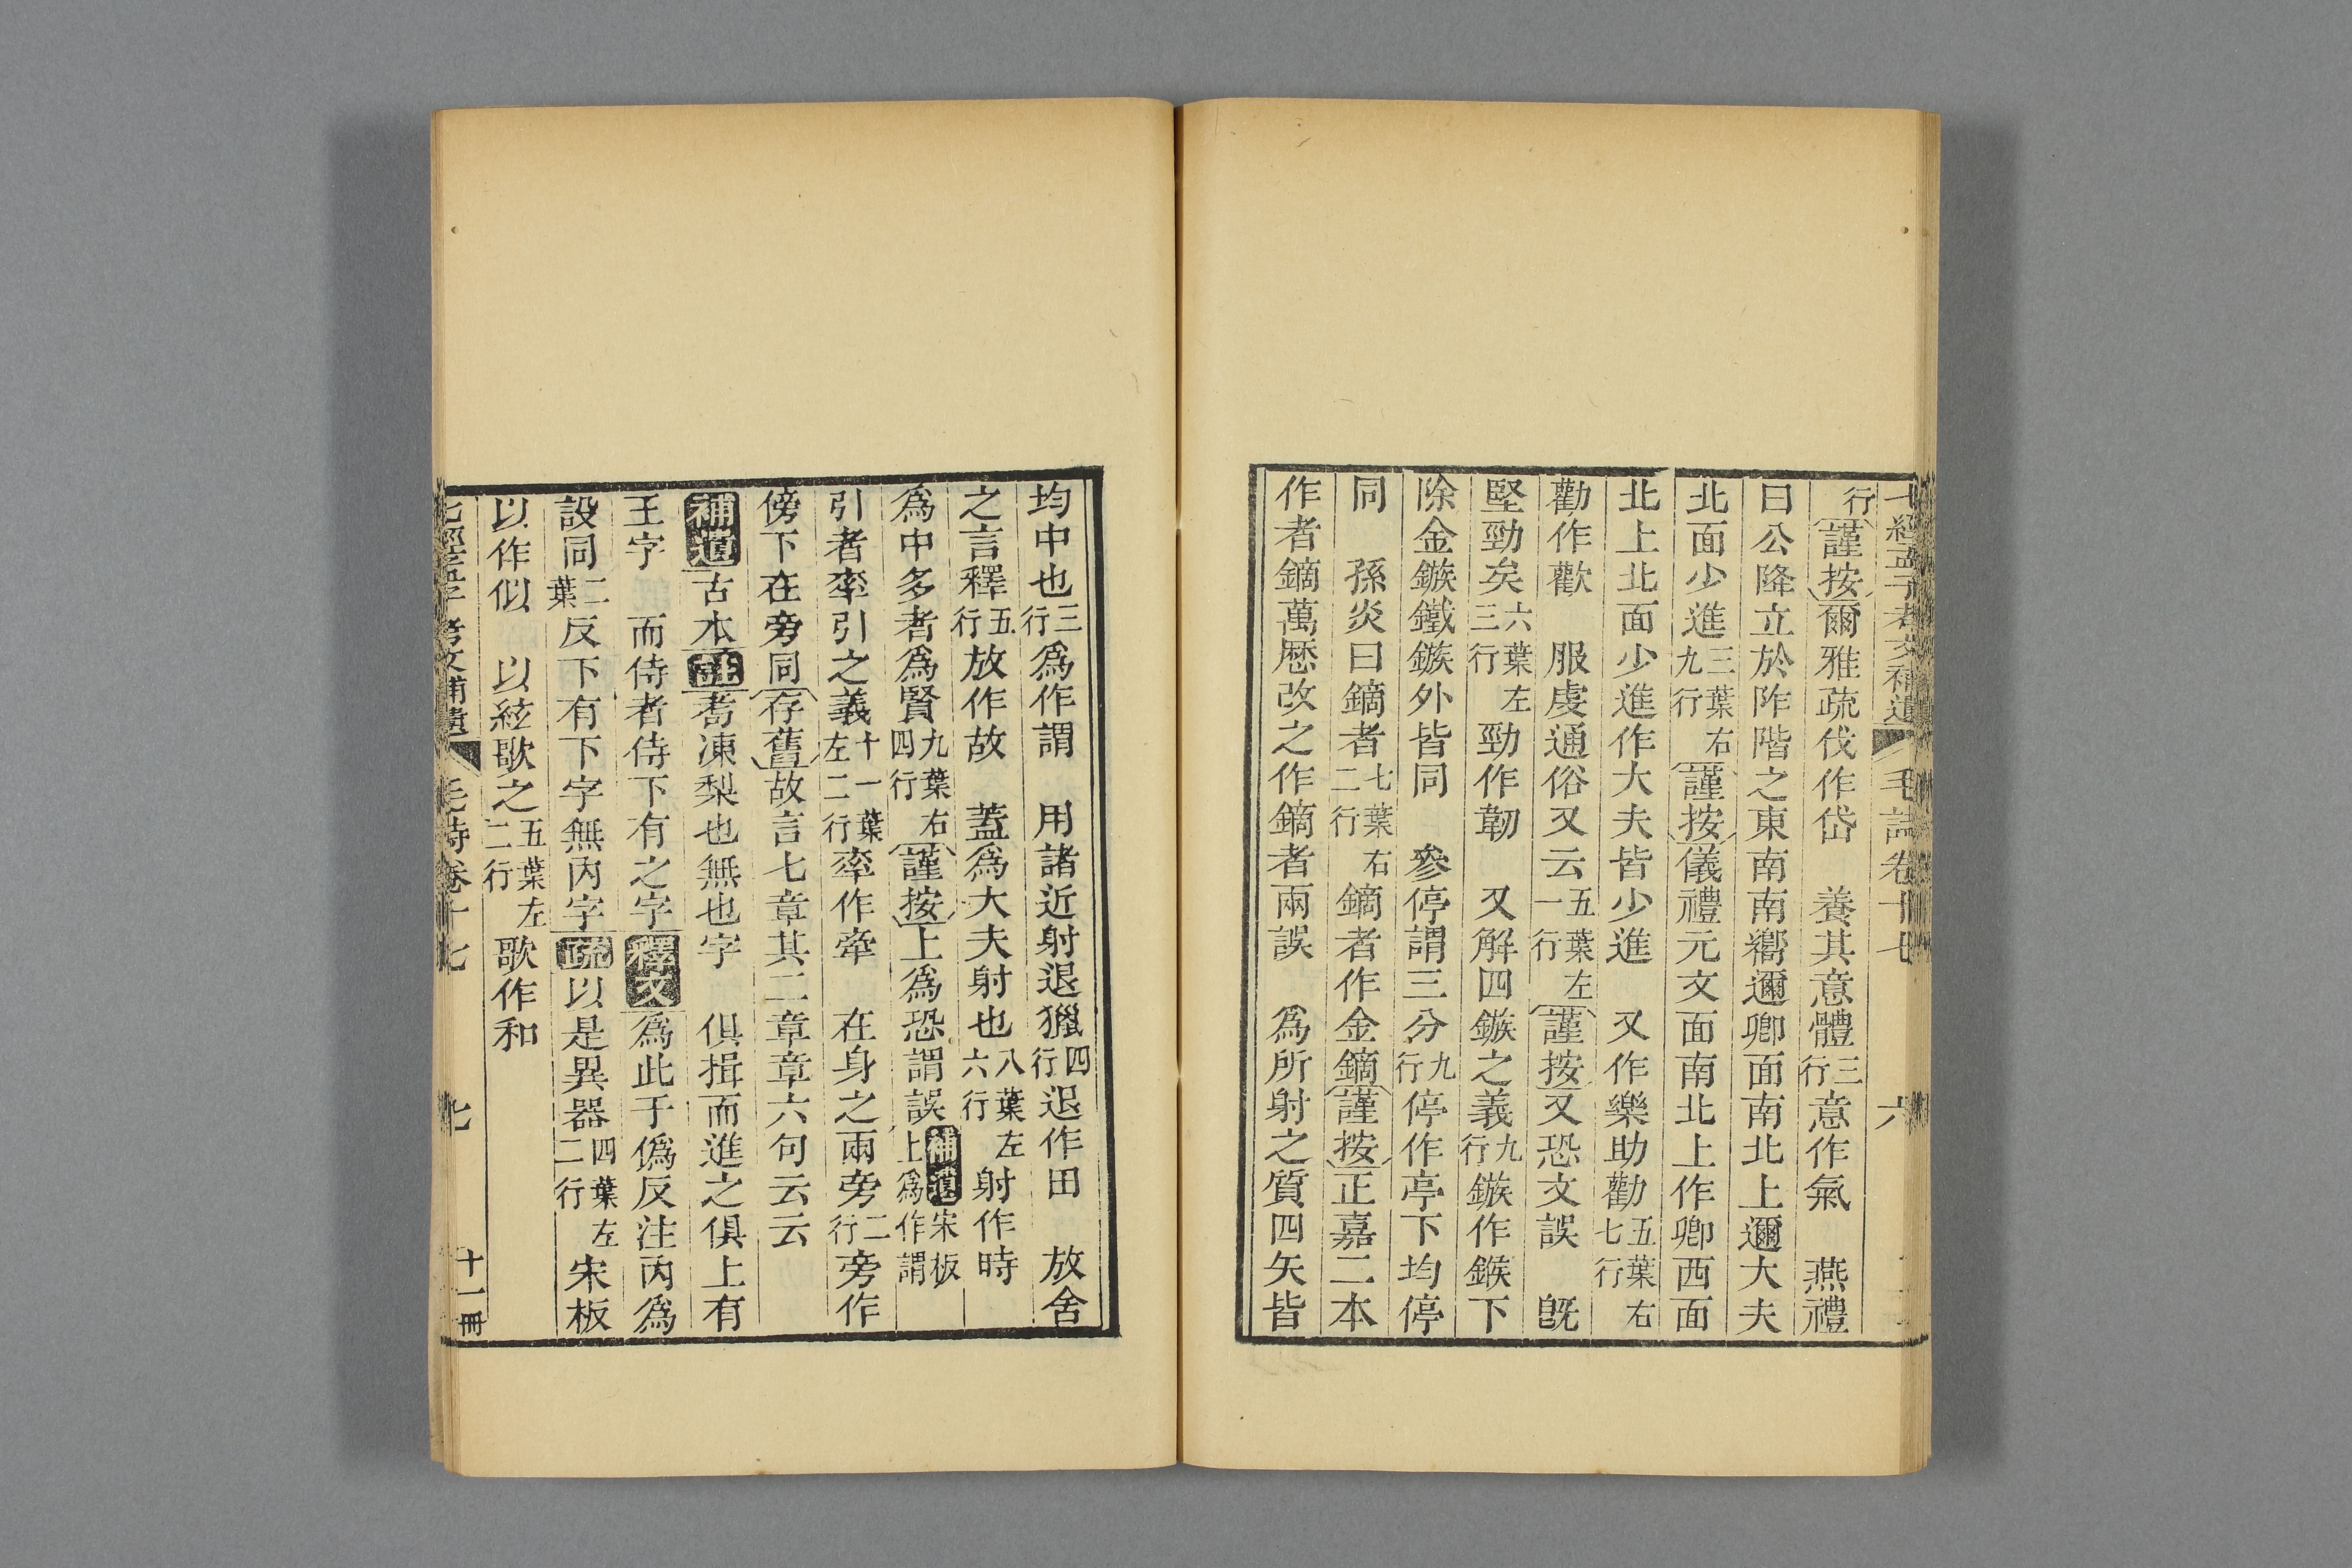 七經孟子考文補遺 毛詩卷十七 六
行謹按爾雅疏伐作岱 養其意體三行意作氣 燕禮
曰公降立於阼階之東南南嚮邇卿面南北上邇大夫
北面少進三葉右九行謹按儀禮元文面南北上作卿西面
北上北面少進作大夫皆少進 又作樂助勸五葉右七行
勸作歡 服虔通俗又云五葉左一行謹按又恐文誤 旣
堅勁矣六葉左三行勁作韌 又解四鏃之義九行鏃作鍭下
除金鏃鐵鏃外皆同 參停謂三分九行停作亭下均停
同 孫炎曰鏑者七葉右二行鏑者作金鏑謹按正嘉二本
作者鏑萬厯改之作鏑者兩誤 爲所射之質四矢皆
均中也三行爲作謂 用諸近射退獵四行退作田 放舍
之言釋五行放作故 蓋爲大夫射也八葉左六行射作時
爲中多者爲賢九葉右四行謹按上爲恐謂誤補遺宋板上爲作謂
引者牽引之義十一葉左二行牽作牽 在身之兩旁二行旁作
傍下在旁同存舊故言七章其二章章六句云云
補遺古本註耇凍梨也無也字 俱揖而進之俱上有
王字 而侍者侍下有之字釋文爲此于僞反注丙爲
設同二葉反下有下字無丙字疏以是異器四葉左二行宋板
以作似 以絃歌之五葉左二行歌作和
七經孟子考文補遺 毛詩卷十七 七 十一冊